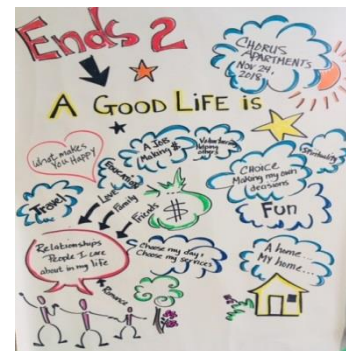 Ends 2
CHORUS
APARTMENTS
NOV 29,
2018
A GOOD LIFE is
What makes
You Happy
Education
A JOB
Making $
Volunteering
Helping
others
Spirituality
CHOICE
Making my own
decisions
Travel
Love
Family
Friends
$
Fun
Relationships
People I care
about in my life
Choose my day,
Choose my services
A home...
My home...
Romance